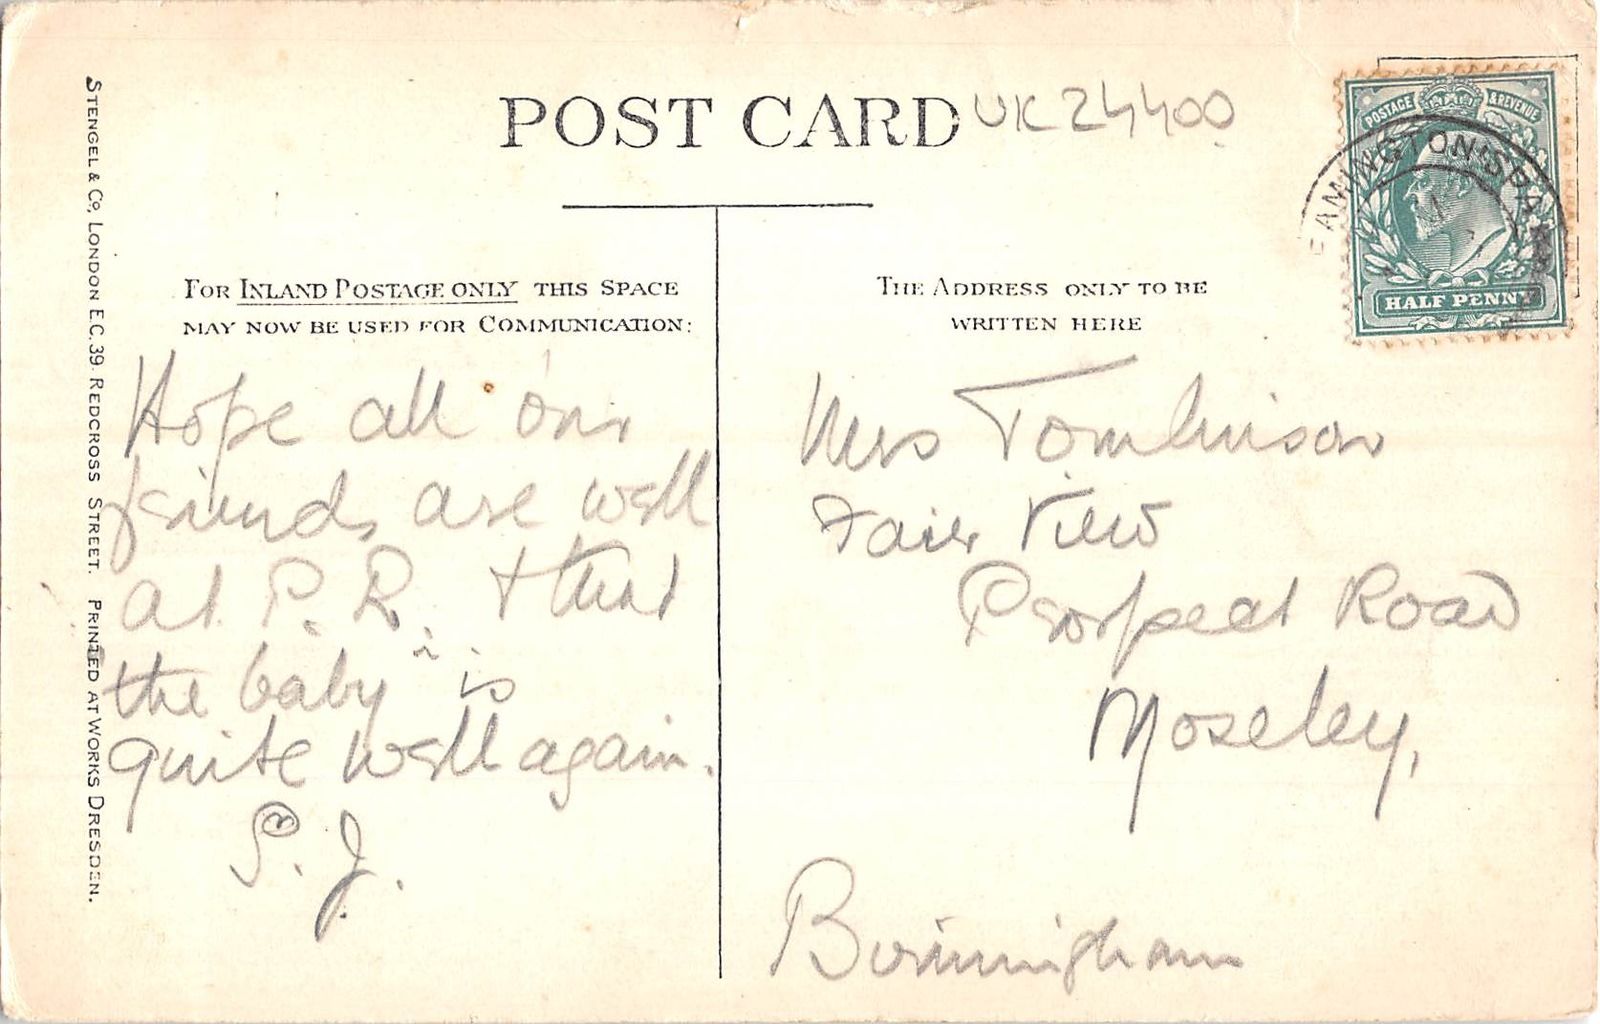 POST CARD
UK 24400
POSTAGE & REVENUE
LEAMINGTON SPA
HALF PENNY
STENGEL & Co, LONDON E.C. 39. REDCROSS STREET. PRINTED AT WORKS DRESDEN.
FOR INLAND POSTAGE ONLY THIS SPACE
MAY NOW BE USED FOR COMMUNICATION:
Hope all our
friends are well
at P. R. & that
the baby is
quite well again.
P. J.
THE ADDRESS ONLY TO BE
WRITTEN HERE
Mrs Tomlinson
Fair View
Prospect Road
Moseley,
Birmingham